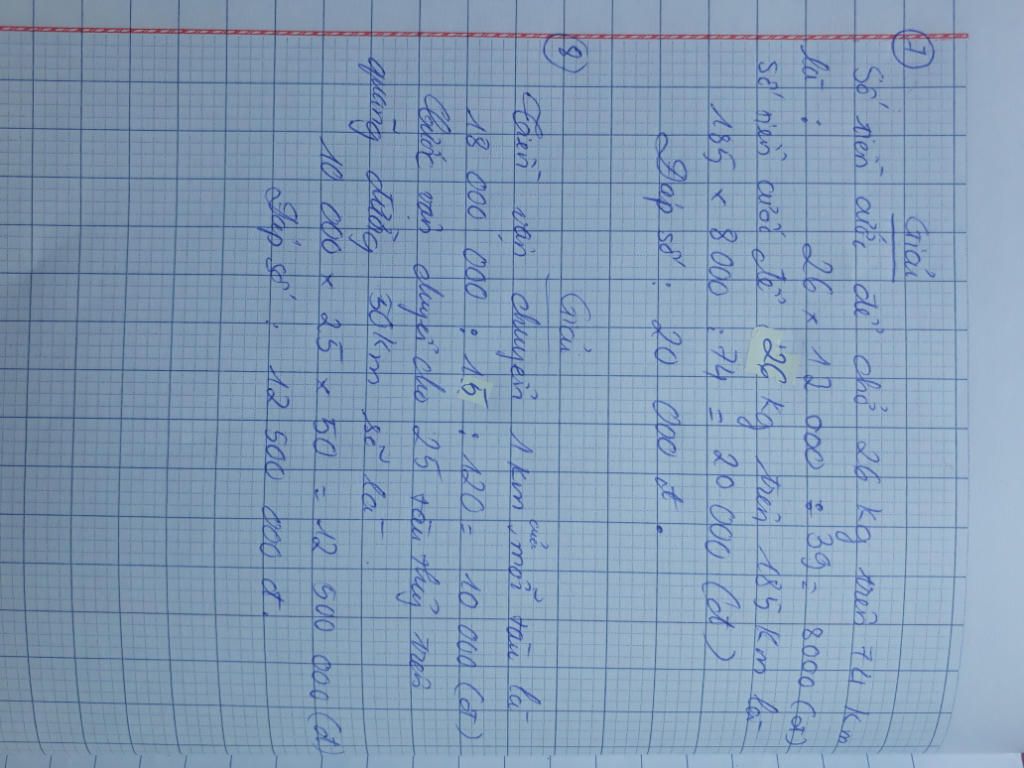 7
Giải
Số tiền cước để chở 26 kg trên 74 km
là :
26 × 12 000 : 39 = 8000 (đ)
Số tiền cước để 26 kg trên 185 km là
185 × 8 000 : 74 = 20 000 (đ)
Đáp số : 20 000 đ.
8
Giải
Tiền vận chuyển 1 km của mỗi tàu là
18 000 000 : 15 : 120 = 10 000 (đ)
Cước vận chuyển cho 25 tàu thủy trên
quãng đường 50km sẽ là
10 000 × 25 × 50 = 12 500 000 (đ)
Đáp số : 12 500 000 đ.